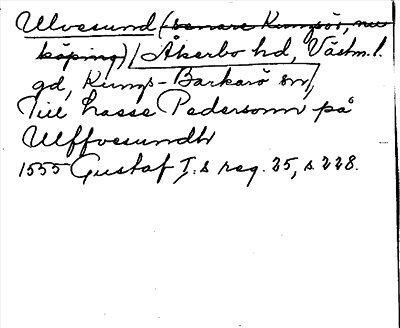 Ulvesund (senare Kungsör, nu
köping) Åkerbo hd, Västm. l.
gd, Kungs-Barkarö sn,
Till Lasse Pedersonn på
Ulffvesundh
1555 Gustaf I.s reg. 25, s. 228.